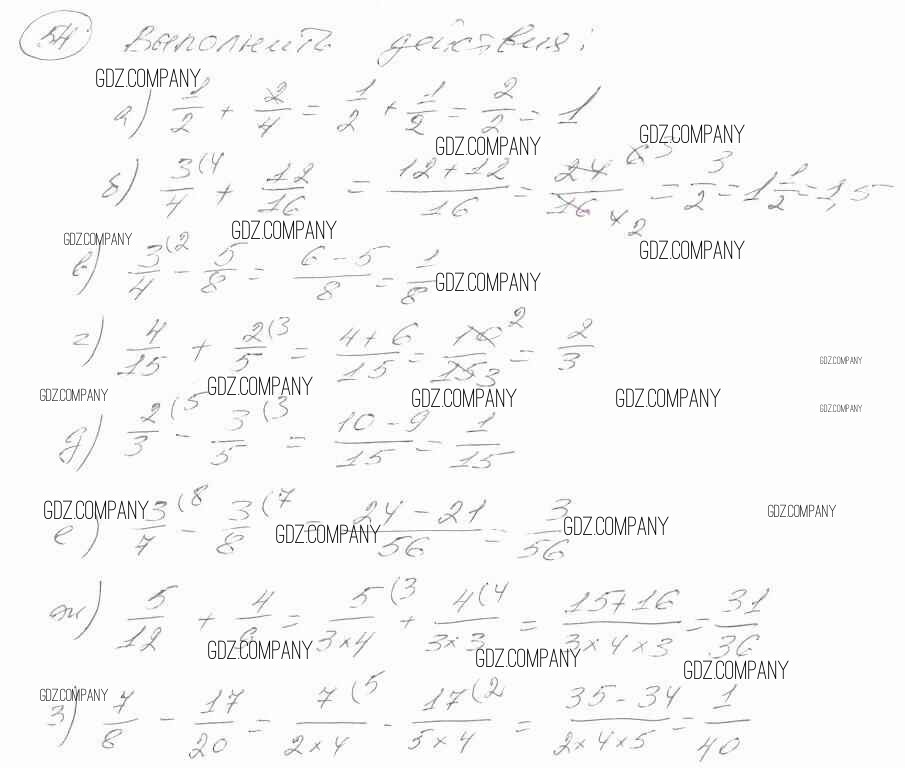 54 Выполнить действия:
GDZ.COMPANY
а) 1/2 + 2/4 = 1/2 + 1/2 = 2/2 = 1
GDZ.COMPANY GDZ.COMPANY
б) 3(4/4 + 12/16 = 12+12/16 = 24 6 3/16 4 2 = 3/2 = 1 1/2 = 1,5
GDZ.COMPANY GDZ.COMPANY GDZ.COMPANY
в) 3(2/4 - 5/8 = 6-5/8 = 1/8 GDZ.COMPANY
г) 4/15 + 2(3/5 = 4+6/15 = 10 2/15 3 = 2/3
GDZ.COMPANY
GDZ.COMPANY GDZ.COMPANY GDZ.COMPANY GDZ.COMPANY GDZ.COMPANY
д) 2(5/3 - 3(3/5 = 10-9/15 = 1/15
GDZ.COMPANY GDZ.COMPANY GDZ.COMPANY GDZ.COMPANY
е) 3(8/7 - 3(7/8 = 24-21/56 = 3/56
ж) 5/12 + 4/9 = 5(3/3×4 + 4(4/3×3 = 15+16/3×4×3 = 31/36
GDZ.COMPANY GDZ.COMPANY GDZ.COMPANY
GDZ.COMPANY
з) 7/8 - 17/20 = 7(5/2×4 - 17(2/5×4 = 35-34/2×4×5 = 1/40